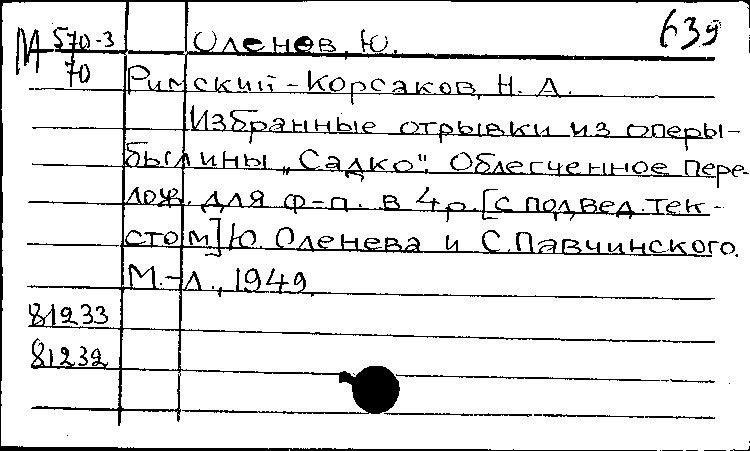 М 570-3 Оленев, Ю. 639
70 Римский-Корсаков, Н. А.
Избранные отрывки из оперы-
былины „Садко". Облегченное пере-
лож. для ф-п. в 4 р. [с подвед. тек-
стом] Ю. Оленева и С. Павчинского.
М.-Л., 1949.
81233
81232